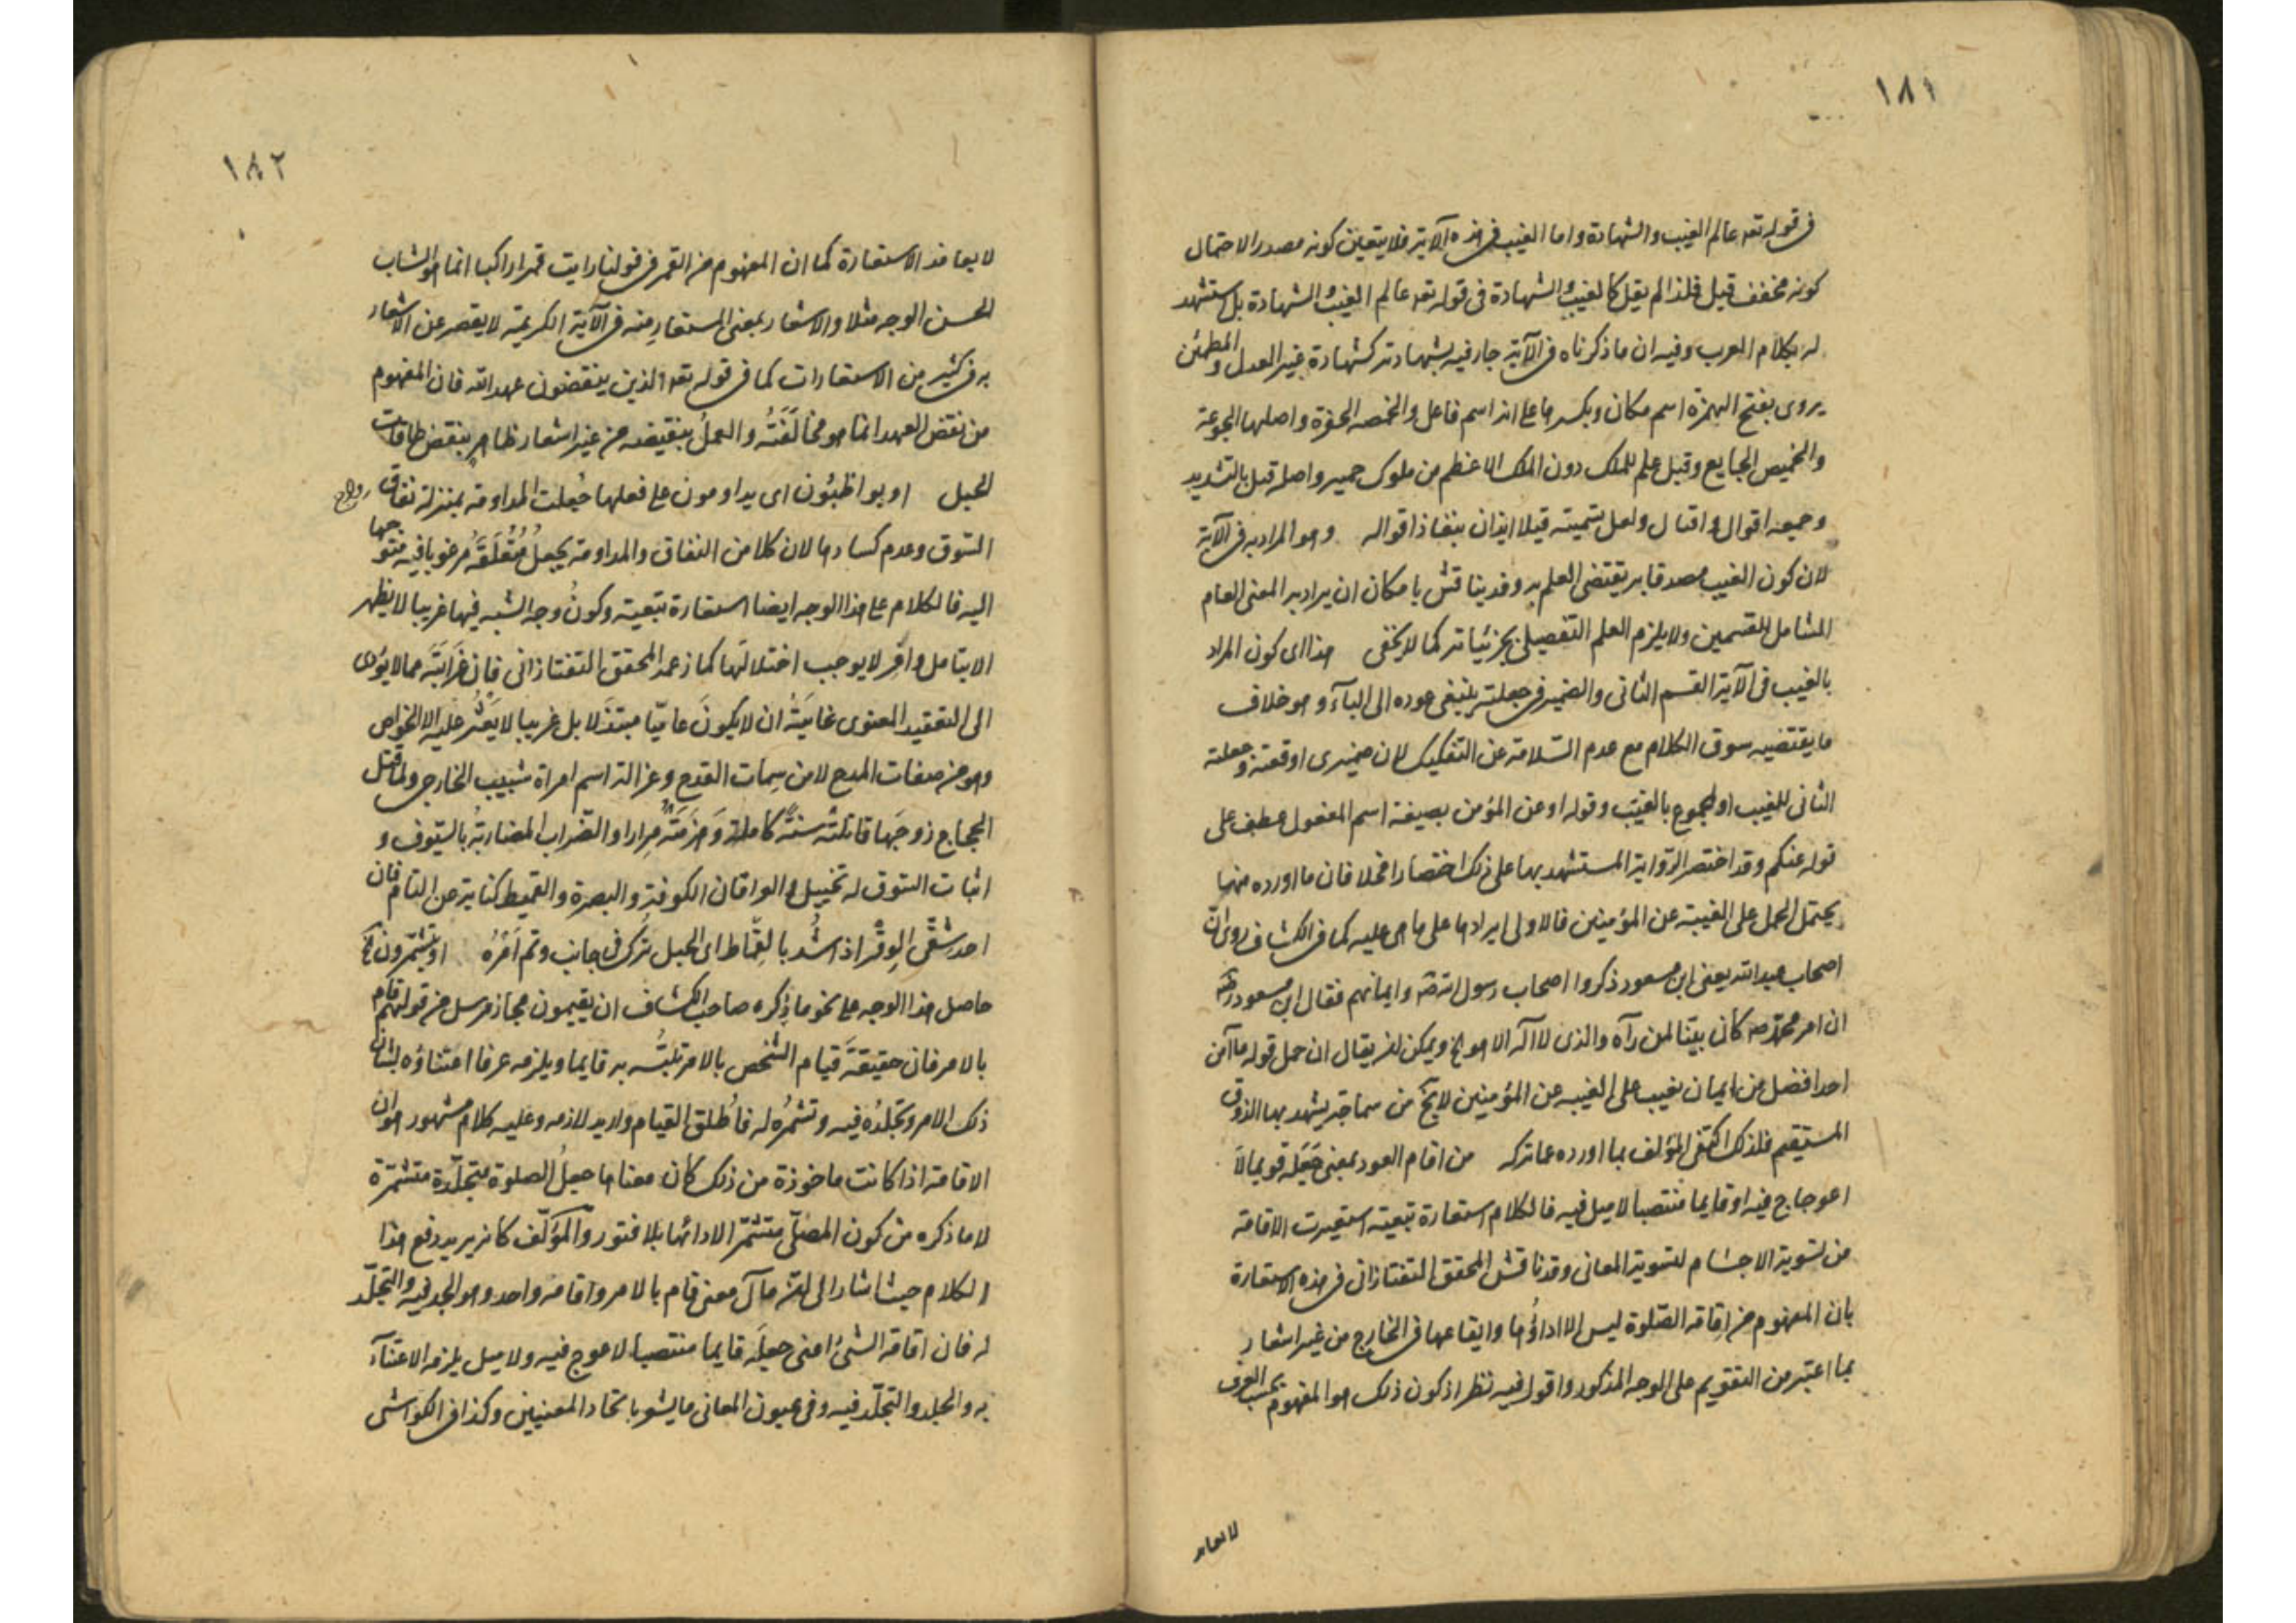 ١٨١
فى قوله تعه عالم الغيب والشهادة واما الغيب فى هذه الآية فلا يتعين كونه مصدرا لاحتمال
كونه مخفف فيعل فلذا لم يقل كالغيب والشهادة فى قوله تعه عالم الغيب والشهادة بل استشهد
له بكلام العرب وفيه ان ما ذكرناه فى الآية جار فيه بشهادته كشهادة غير العدل والمطمئن
يروى بفتح الهمزة اسم مكان وبكسرها على انه اسم فاعل والخمصه الحفرة واصلها الجوعة
والخميص الجايع وقيل علم للملك دون الملك الاعظم من ملوك حمير واصله قيل بالتشديد
وجمعه اقوال و اقيال ولعل تسميته قيلا ايذان بنفاذ اقواله وهو المراد به فى الآية
لان كون الغيب مصدقا به يقتضى العلم به وقد يناقش بامكان ان يراد به المعنى العام
الشامل للقسمين ولا يلزم العلم التفصيلى بجزئياته كما لا يخفى هذا اى كون المراد
بالغيب فى الآية القسم الثانى والضمير فى جعلته ينبغى عوده الى الباء و هو خلاف
ما يقتضيه سوق الكلام مع عدم السلامة عن التفكيك لان ضميرى اوقعته وجعلته
الثانى للغيب او لمجموع بالغيب وقوله او عن المؤمن بصيغة اسم المفعول عطف على
قوله عنكم وقد اختصر الرواية المستشهد بها على ذلك اختصارا مخلا فان ما اورده منها
يحتمل الحمل على الغيبة عن المؤمنين فالاولى ايرادها على ما هى عليه كما فى الكشاف روى ان
اصحاب عبدالله يعنى ابن مسعود ذكروا اصحاب رسول الله صه وايمانهم فقال ابن مسعود رضه
ان امر محمد صه كان بيّنا لمن رآه والذى لا اله الا هو الخ ويمكن ان يقال ان حمل قوله ما آمن
احد افضل من ايمان بغيب على الغيبه عن المؤمنين لا يخ من سماجة يشهد بها الذوق
المستقيم فلذلك اكتفى المؤلف بما اورده عما تركه من اقام العود بمعنى جَعَله قويما لا
اعوجاج فيه او قايما منتصبا لا ميل فيه فالكلام استعارة تبعيته استعيرت الاقامة
من تسوية الاجسام لتسوية المعانى وقد ناقش المحقق التفتازانى فى هذه الاستعارة
بان المفهوم من اقامة الصلوة ليس الا اداؤها وايقاعها فى الخارج من غير اشعار
بما اعتبر من التقويم على الوجه المذكور واقول فيه نظر اذ كون ذلك هو المفهوم بحسب العرف
لا يعاند
١٨٢
لا يعاند الاستعارة كما ان المفهوم من القمر فى قولنا رايت قمرا راكبا انما هو الشاب
الحسن الوجه مثلا والاشعار بمعنى المستعار منه فى الآية الكريمة لا يقصر عن الاشعار
به فى كثير من الاستعارات كما فى قوله تعه الذين ينقضون عهد الله فان المفهوم
من نقض العهد انما هو مخالفَتُه والعملُ بنقيضه من غير اشعار ظاهر بنقض طاقات
الحبل او يواظبُون اى يداومون على فعلها جُعلت المداومة بمنزلة نفاق
السوق وعدم كسادها لان كلا من النفاق والمداومة يجعلُ مُتُعَلَقَه مرغوبا فيه متوجها
اليه فالكلام على هذا الوجه ايضا استعارة تبعيته وكونُ وجه الشبه فيها غريبا لا يظهر
الا بتامل وافر لا يوجب اختلالها كما زعمه المحقق التفتازانى فان غرابتَه مما لا يؤدى
الى التعقيد المعنوى غايتُه ان لا يكونَ عاميّا مبتذلا بل غريبا لا يَعثُر عليه الا الخواص
وهو من صفات المدح لا من سِمات القدح وغزالة اسم امراة شبيب الخارجى ولما قتل
الحجاج زوجَها قاتلته سنةً كاملة وَهزمَتْه مِرارا والضّراب المضاربة بالسيوف و
اثبات السوق له تخييل والعراقان الكوفة والبصرة والقميط كناية عن التام فان
احد شِقّى الوِقْر اذا شُد بالقِماط اى الحبل تُرك فى جانب وتم اَمْرُه او يتشمّرون الخ
حاصل هذا الوجه على نحو ما ذكره صاحب الكشاف ان يقيمون مجاز مرسل من قولهم قام
بالامر فان حقيقةَ قيام الشخص بالامر تلبُّسه به قايما ويلزمه عرفا اعتناؤه بشان
ذلك الامر وتجلّدُه فيه وتشمّرُه له فاُطلق القيام واريد لازمه وعليه كلام مشهور هو ان
الاقامة اذا كانت ماخوذة من ذلك كان معناها جعلُ الصلوة متجلّدة متشمّرة
لا ما ذكره من كون المصلّى متشمّرا لادائها بلا فتور والمؤلّف كانه يريد رفع هذا
الكلام حيث اشار الى ان مآل معنى قام بالامر واقامه واحد وهو الجد فيه والتجلّد
له فان اقامة الشئ اعنى جعلَه قايما منتصبا لا عوج فيه ولا ميل يلزمه الاعتناء
به والجلد والتجلّد فيه وفى عيون المعانى ما يشعر باتحاد المعنيين وكذا فى الكواشى